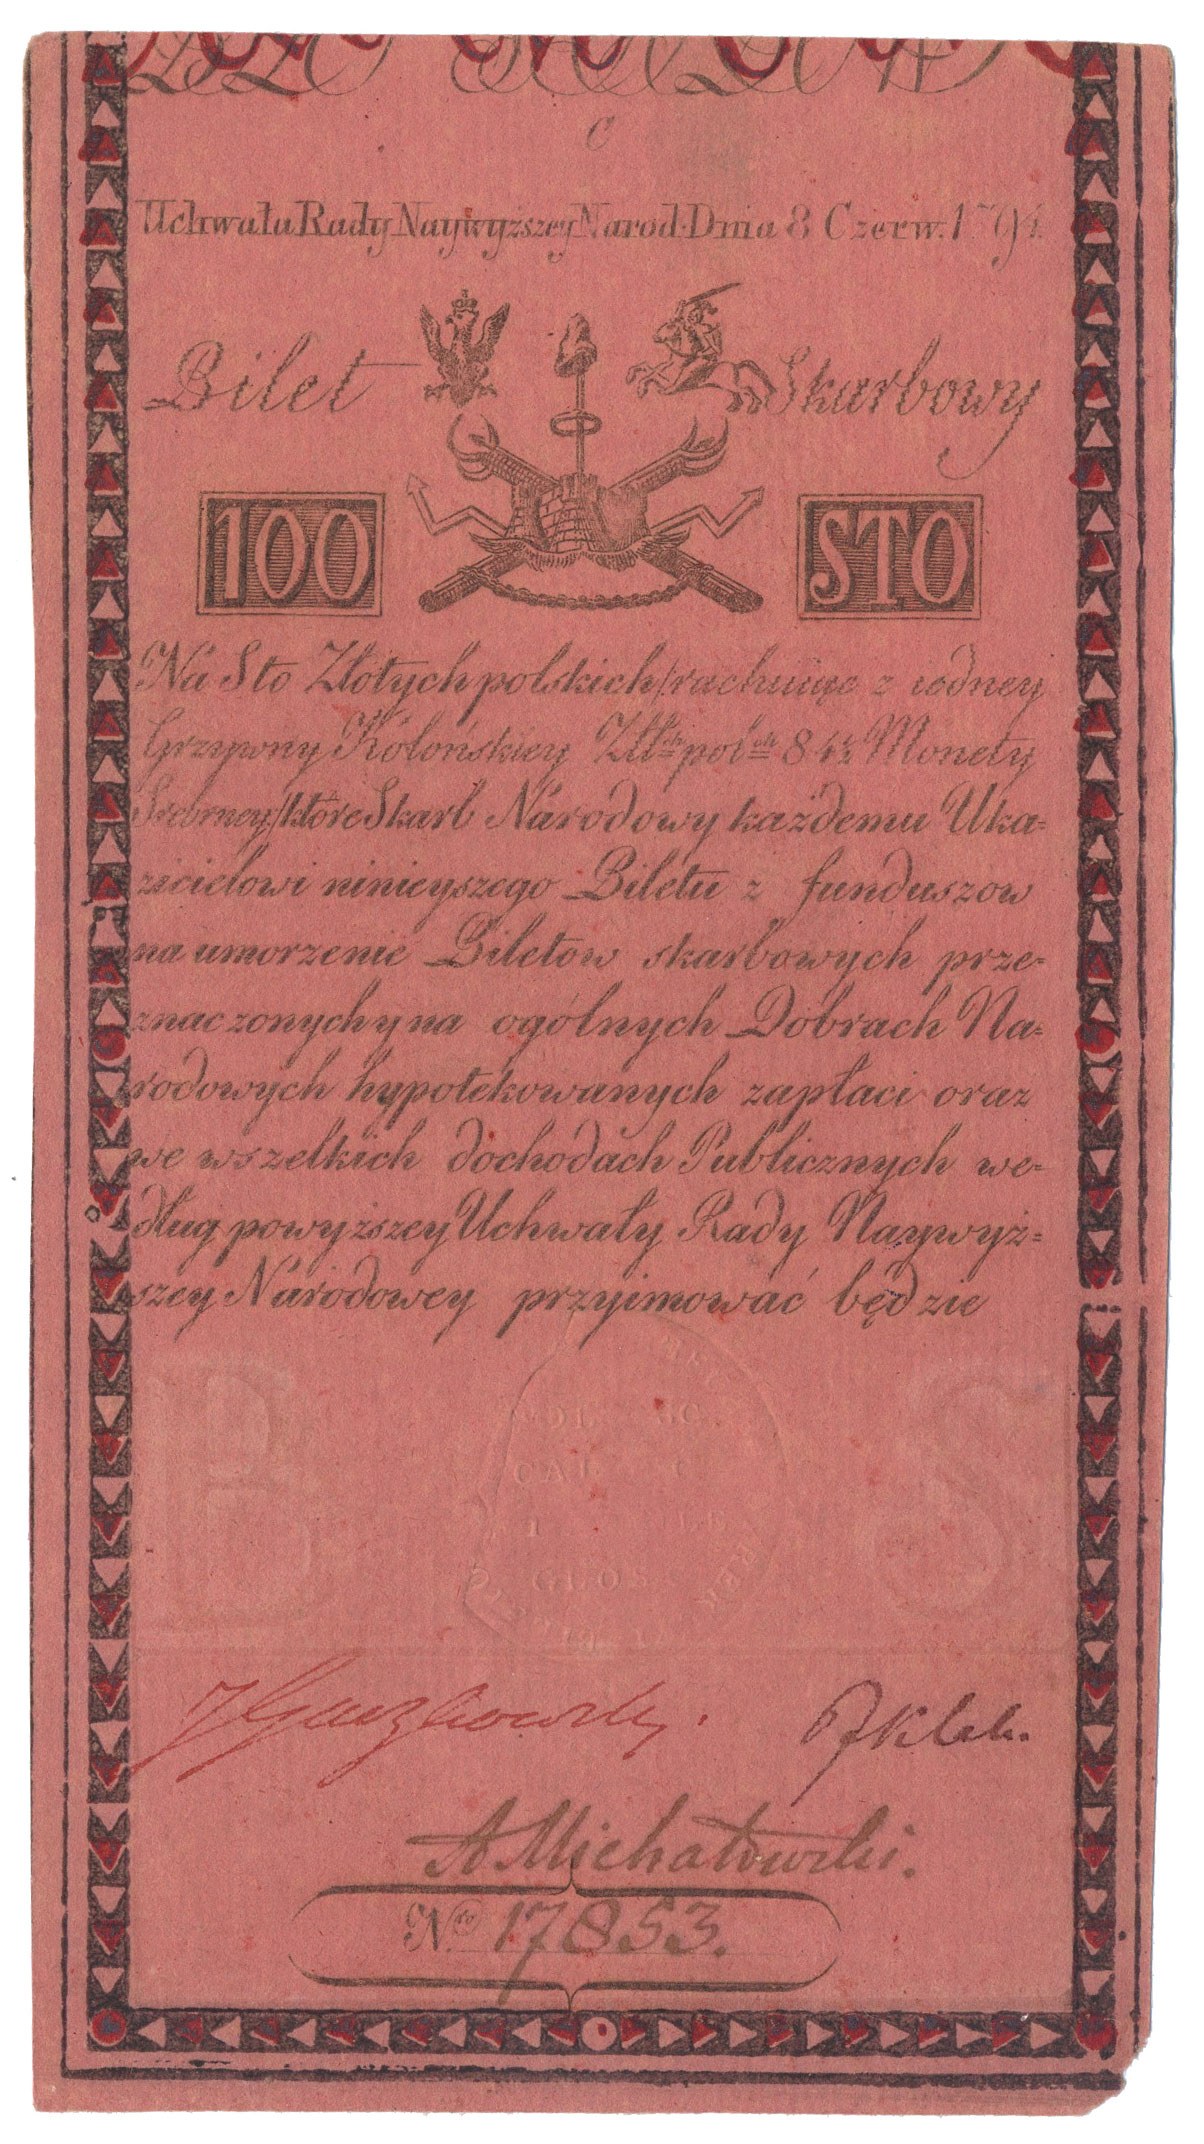 C
Uchwała Rady Naywyższey Narod. Dnia 8 Czerw. 1794.
Bilet Skarbowy
100 STO
Na Sto Złotych polskich /rachuiąc z iedney
Grzywny Kolońskiey Złł:ch pol:ch 84½ Monety
Srebrney/ które Skarb Narodowy każdemu Uka=
zicielowi ninieyszego Biletu z funduszow
na umorzenie Biletow skarbowych prze=
znaczonych y na ogólnych Dobrach Na=
rodowych hypotekowanych zapłaci oraz
we wszelkich dochodach Publicznych we=
dług powyższey Uchwały Rady Naywyż=
szey Narodowey przyimować będzie
B S
GLOS
A Michałowski.
No 17853.